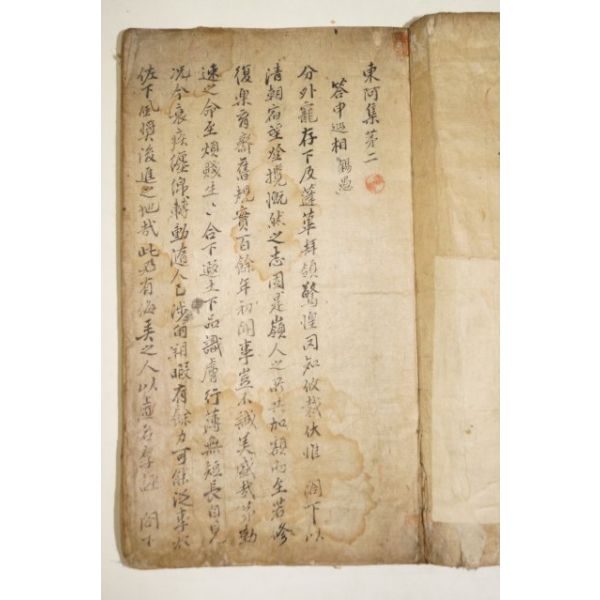 東阿集苐二
答申巡相
分外寵存下及蓬蓽拜領驚惶罔知攸裁伏惟 閤下以
清朝宿望登攬慨然之志固是嶺人之所共加額而至若修
復樂育齋舊規實百餘年初聞事豈不誠美盛哉第勤
速之命至煩賤生生合下遐土下品識膚行薄無短長自見
况今衰疾纏綿轉動隨人已涉兩朔暇有餘力可能從事於
佐下風奬後進之地哉此乃有侮美之人以虛名 閤下